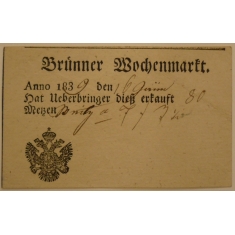 Brünner Wochenmarkt.
Anno 1839 den 16 Juni
Hat Ueberbringer dieß erkauft 80
Metzen à 7 f